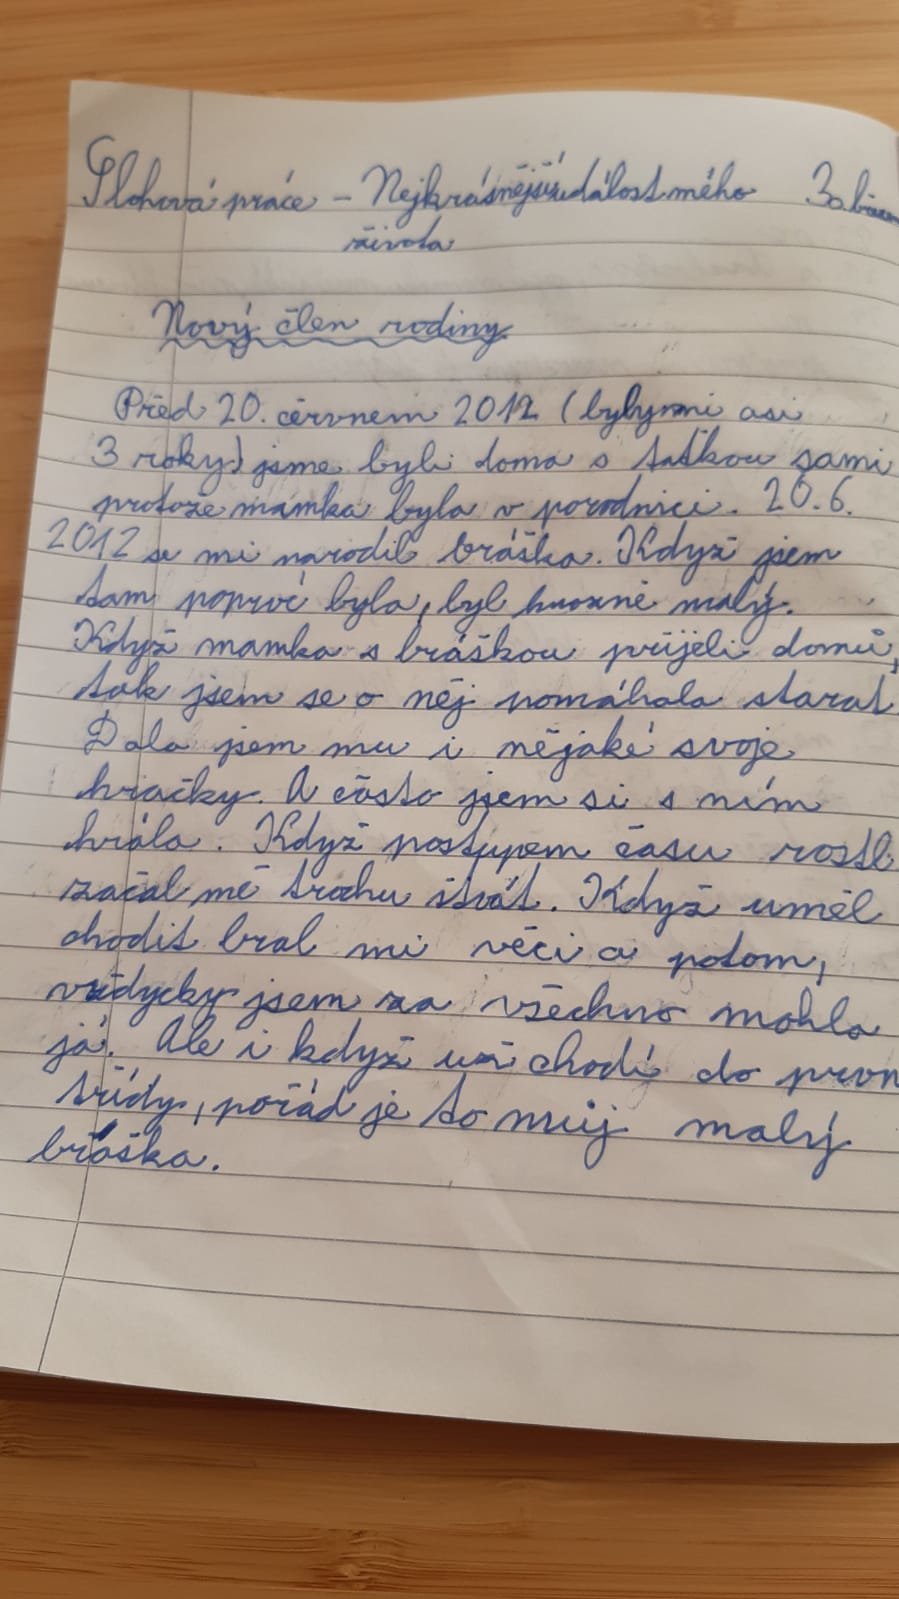 Slohová práce – Nejkrásnější událost mého
života
Nový člen rodiny
Před 20. červnem 2012 (byly mi asi
3 roky) jsme byli doma s taťkou sami
protože mamka byla v porodnici. 20.6.
2012 se mi narodil bráška. Když jsem
tam poprvé byla, byl hrozně malý.
Když mamka s bráškou přijeli domů,
tak jsem se o něj pomáhala starat
Dala jsem mu i nějaké svoje
hračky. A často jsem si s ním
hrála. Když postupem času rostl
začal mě trochu štvát. Když uměl
chodit bral mi věci a potom,
vždycky jsem za všechno mohla
já. Ale i když už chodí do prvn
třídy, pořád je to můj malý
bráška.